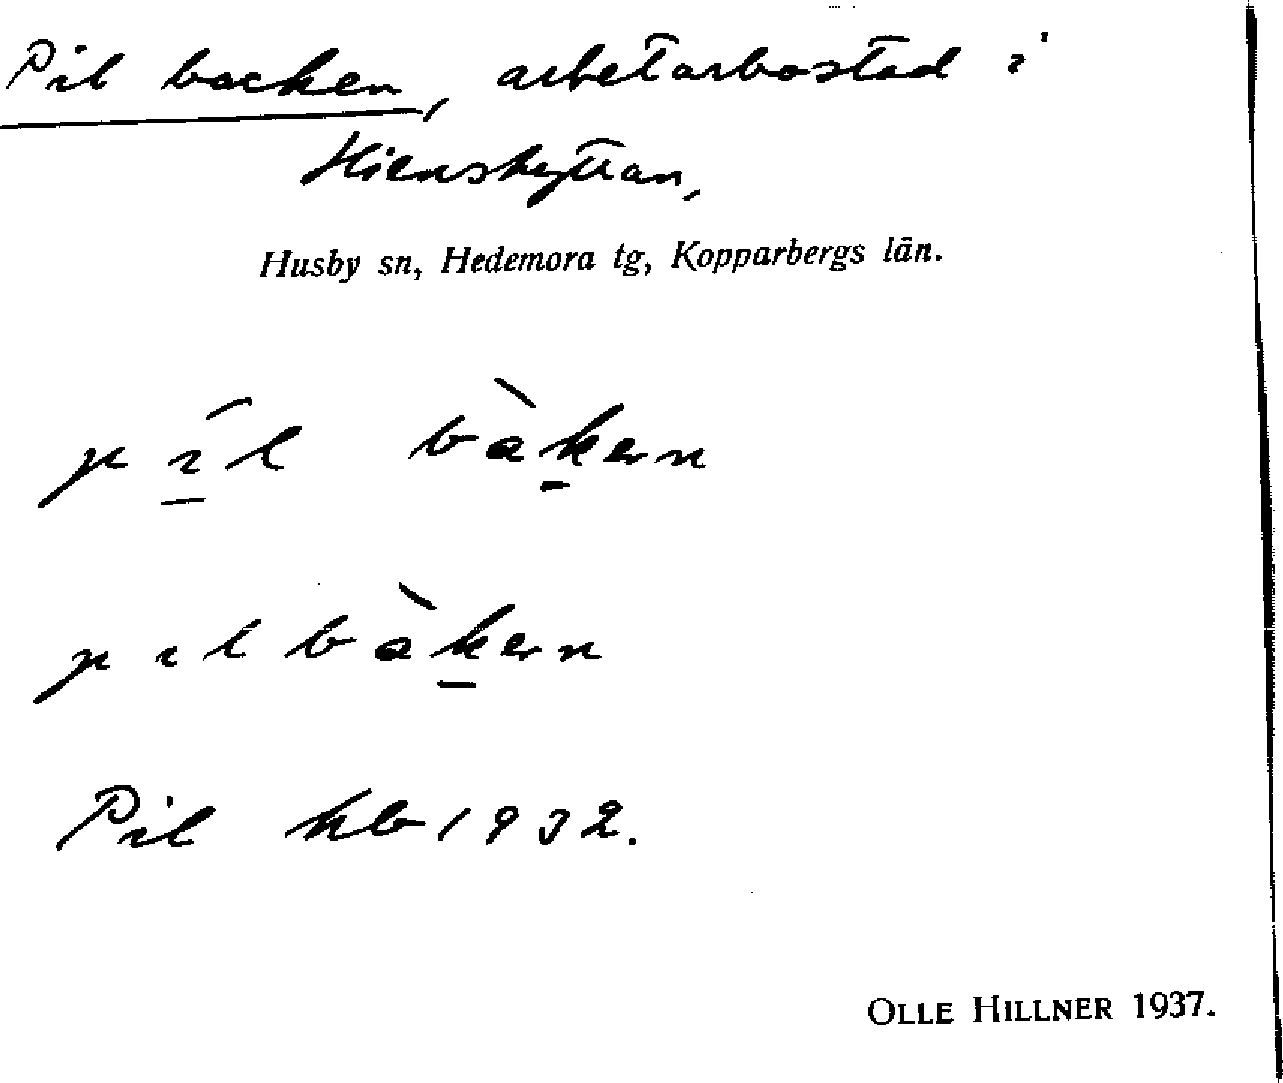 Pil backen, arbetarbostad i
Stiernshyttan,
Husby sn, Hedemora tg, Kopparbergs län.
píl bàkən
pılbàkən
Pil kb 1932.
OLLE HILLNER 1937.